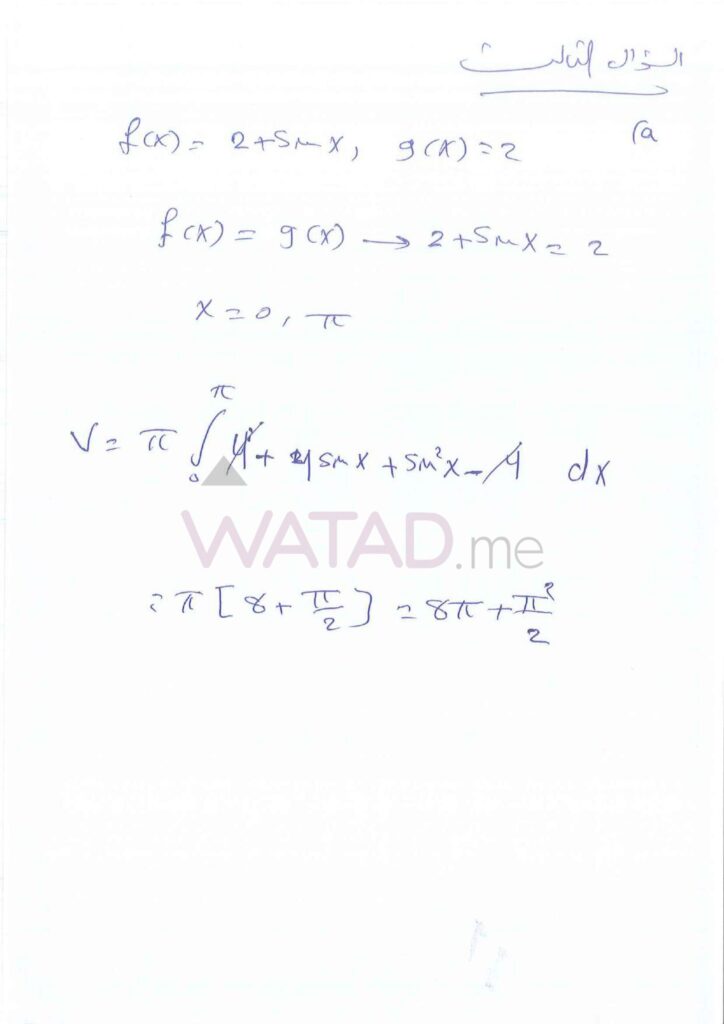 السؤال الثالث
a)
f(x) = 2 + sin x, g(x) = 2
f(x) = g(x) → 2 + sin x = 2
x = 0, π
V = π ∫₀^π 4 + 4 sin x + sin²x - 4 dx
WATAD.me
= π [8 + π/2] = 8π + π²/2